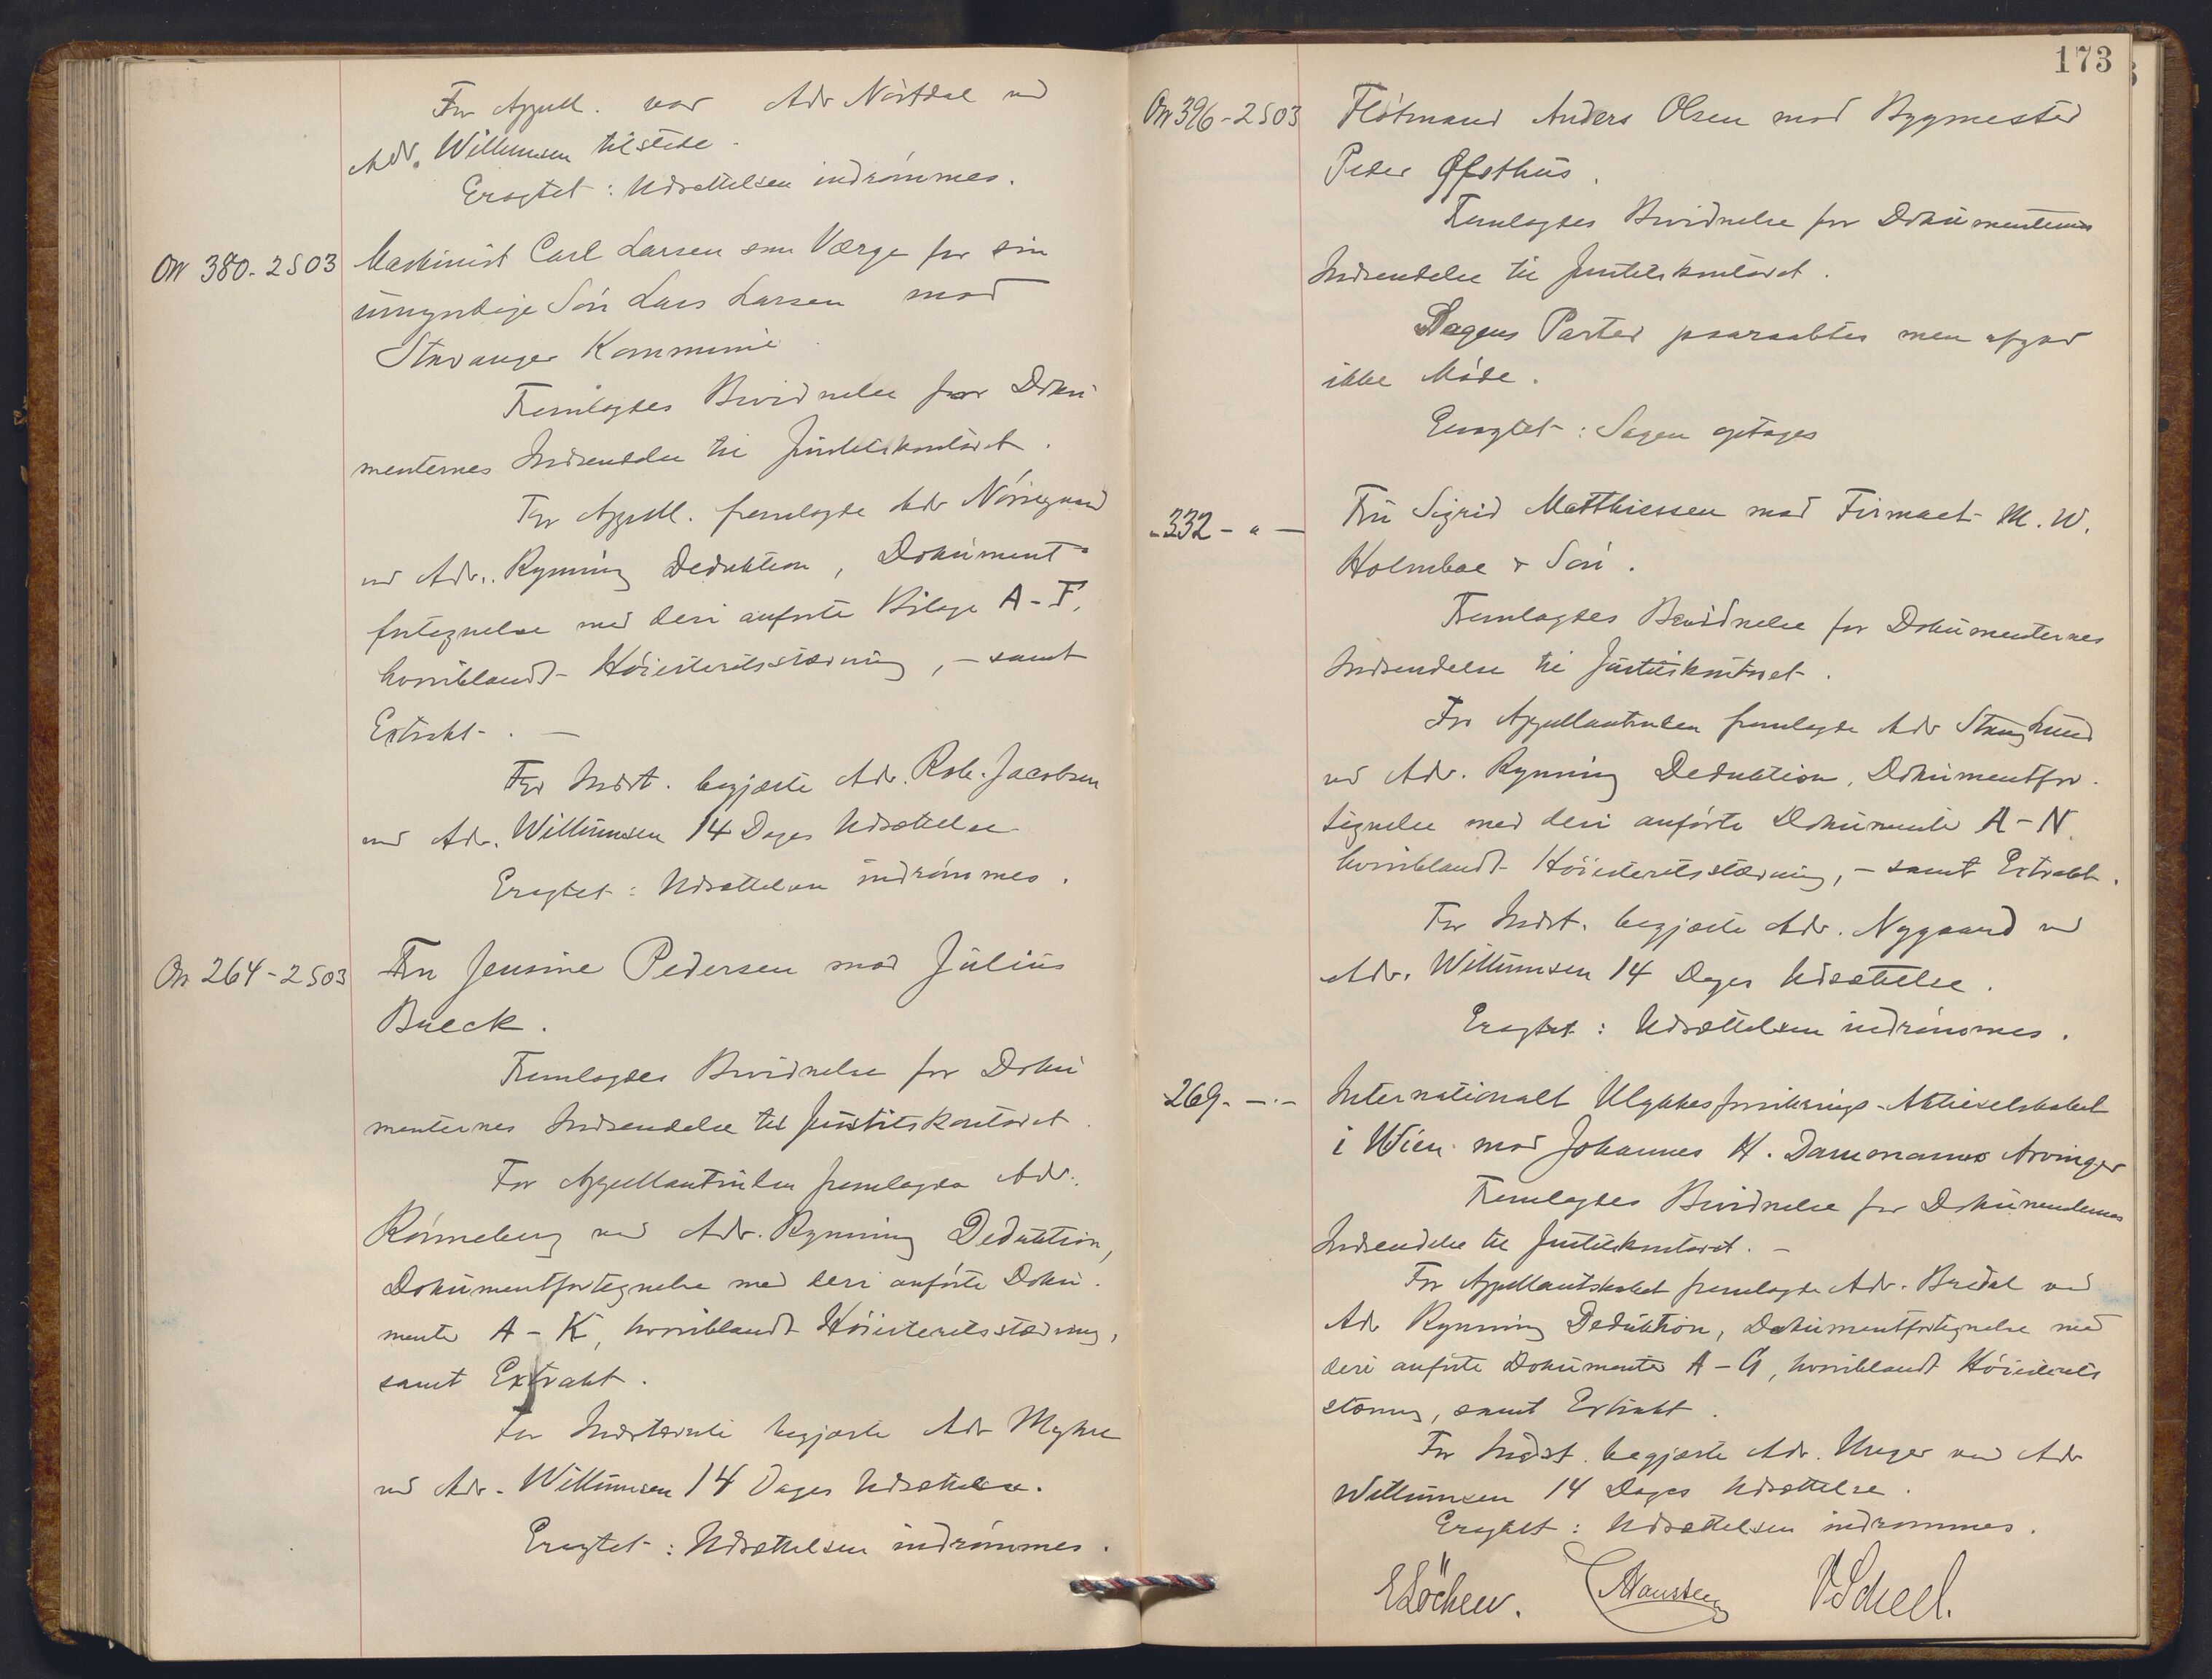 For Appell. var Adv Nörtdal ved
Adv. Willumsen tilstede.
Eragtet: Udsættelsen indrömmes.
On 380-2 S 03 Maskinist Carl Larsen som Værge for sin
umyndige Sön Lars Larsen mod
Stavanger Kommune
Fremlagdes Bevidnelse for Doku
menternes Indsendelse til Justitskontoret.
For Appell. fremlagde Adv Nörregaard
ved Adv. Rynning Deduktion, Dokument
fortegnelse med deri anförte Bilage A-F,
hvoriblandt Höiesteretsstævning, - samt
Extrakt. -
For Indst. begjærte Adv. Rob. Jacobsen
ved Adv. Willumsen 14 Dages Udsættelse
Eragtet: Udsættelsen indrömmes.
On 264-2 S 03 Fru Jensine Pedersen mod Julius
Bueck.
Fremlagdes Bevidnelse for Doku
menternes Indsendelse til Justitskontoret.
For Appellantinden fremlagde Adv.
Rönneberg ved Adv. Rynning Deduktion,
Dokumentfortegnelse med deri anförte Doku-
menter A-K, hvoriblandt Höiesteretsstævning,
samt Extrakt.
For Indstævnte begjærte Adv Myhre
ved Adv. Willumsen 14 Dages Udsættelse.
Eragtet: Udsættelsen indrömmes.
173
On 396-2 S 03 Flötmand Anders Olsen mod Bygmester
Peder Ofsthus.
Fremlagdes Bevidnelse for Dokumenternes
Indsendelse til Justitskontoret.
Sagens Parter paaraabtes men afgav
ikke Möde.
Eragtet: Sagen optages
-332-"- Fru Sigrid Matthiessen mod Firmaet M. W.
Holmboe & Sön.
Fremlagdes Bevidnelse for Dokumenternes
Indsendelse til Justitskontoret.
For Appellantinden fremlagde Adv Stang Lund
ved Adv. Rynning Deduktion, Dokumentfor-
tegnelse med deri anförte Dokumenter A-N
hvoriblandt Höiesteretsstævning, - samt Extrakt.
For Indst. begjærte Adv. Nygaard ved
Adv. Willumsen 14 Dages Udsættelse.
Eragtet: Udsættelsen indrömmes.
269.-.- Internationalt Ulykkesforsikrings-Aktieselskabet
i Wien mod Johannes H. Dammanns Arvinger
Fremlagdes Bevidnelse for Dokumenternes
Indsendelse til Justitskontoret. -
For Appellantskabet fremlagde Adv. Bredal ved
Adv Rynning Deduktion, Dokumentfortegnelse med
deri anförte Dokumenter A-G, hvoriblandt Höiesterets
stævning, samt Extrakt.
For Indst. begjærte Adv. Unger ved Adv
Willumsen 14 Dages Udsættelse.
Eragtet: Udsættelsen indrömmes.
E Löchen. Hansteen V Scheel.